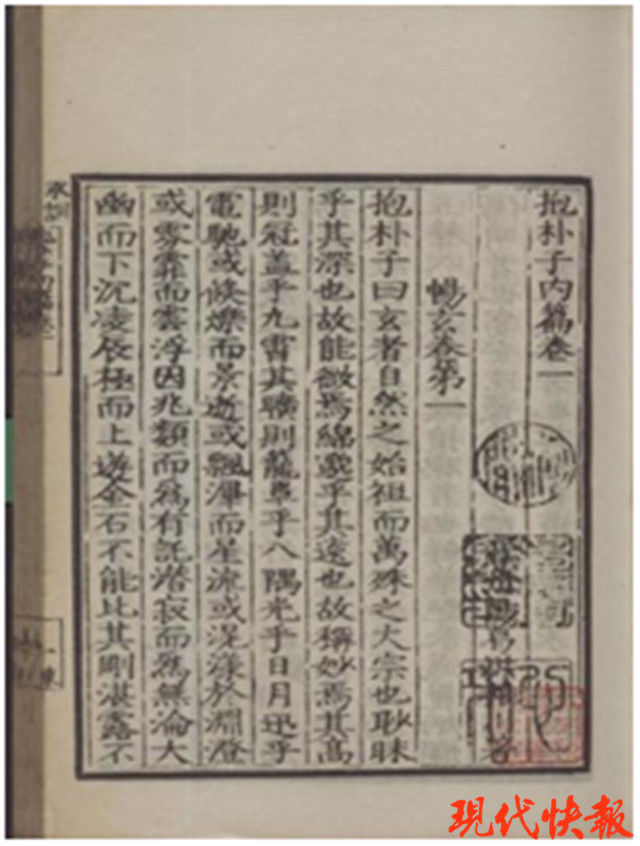 抱朴子内篇卷一
葛洪
暢玄卷第一
抱朴子曰玄者自然之始祖而萬殊之大宗也眇昧
乎其深也故能微焉綿邈乎其遠也故稱妙焉其高
則冠盖乎九霄其曠則籠罩乎八隅光乎日月迅乎
電馳或倏爍而景逝或飄滭而星流或滉漾於淵澄
或雰霏而雲浮因兆類而爲有託潛寂而爲無淪大
幽而下沉凌辰極而上遊金石不能比其剛湛露不
現代快報